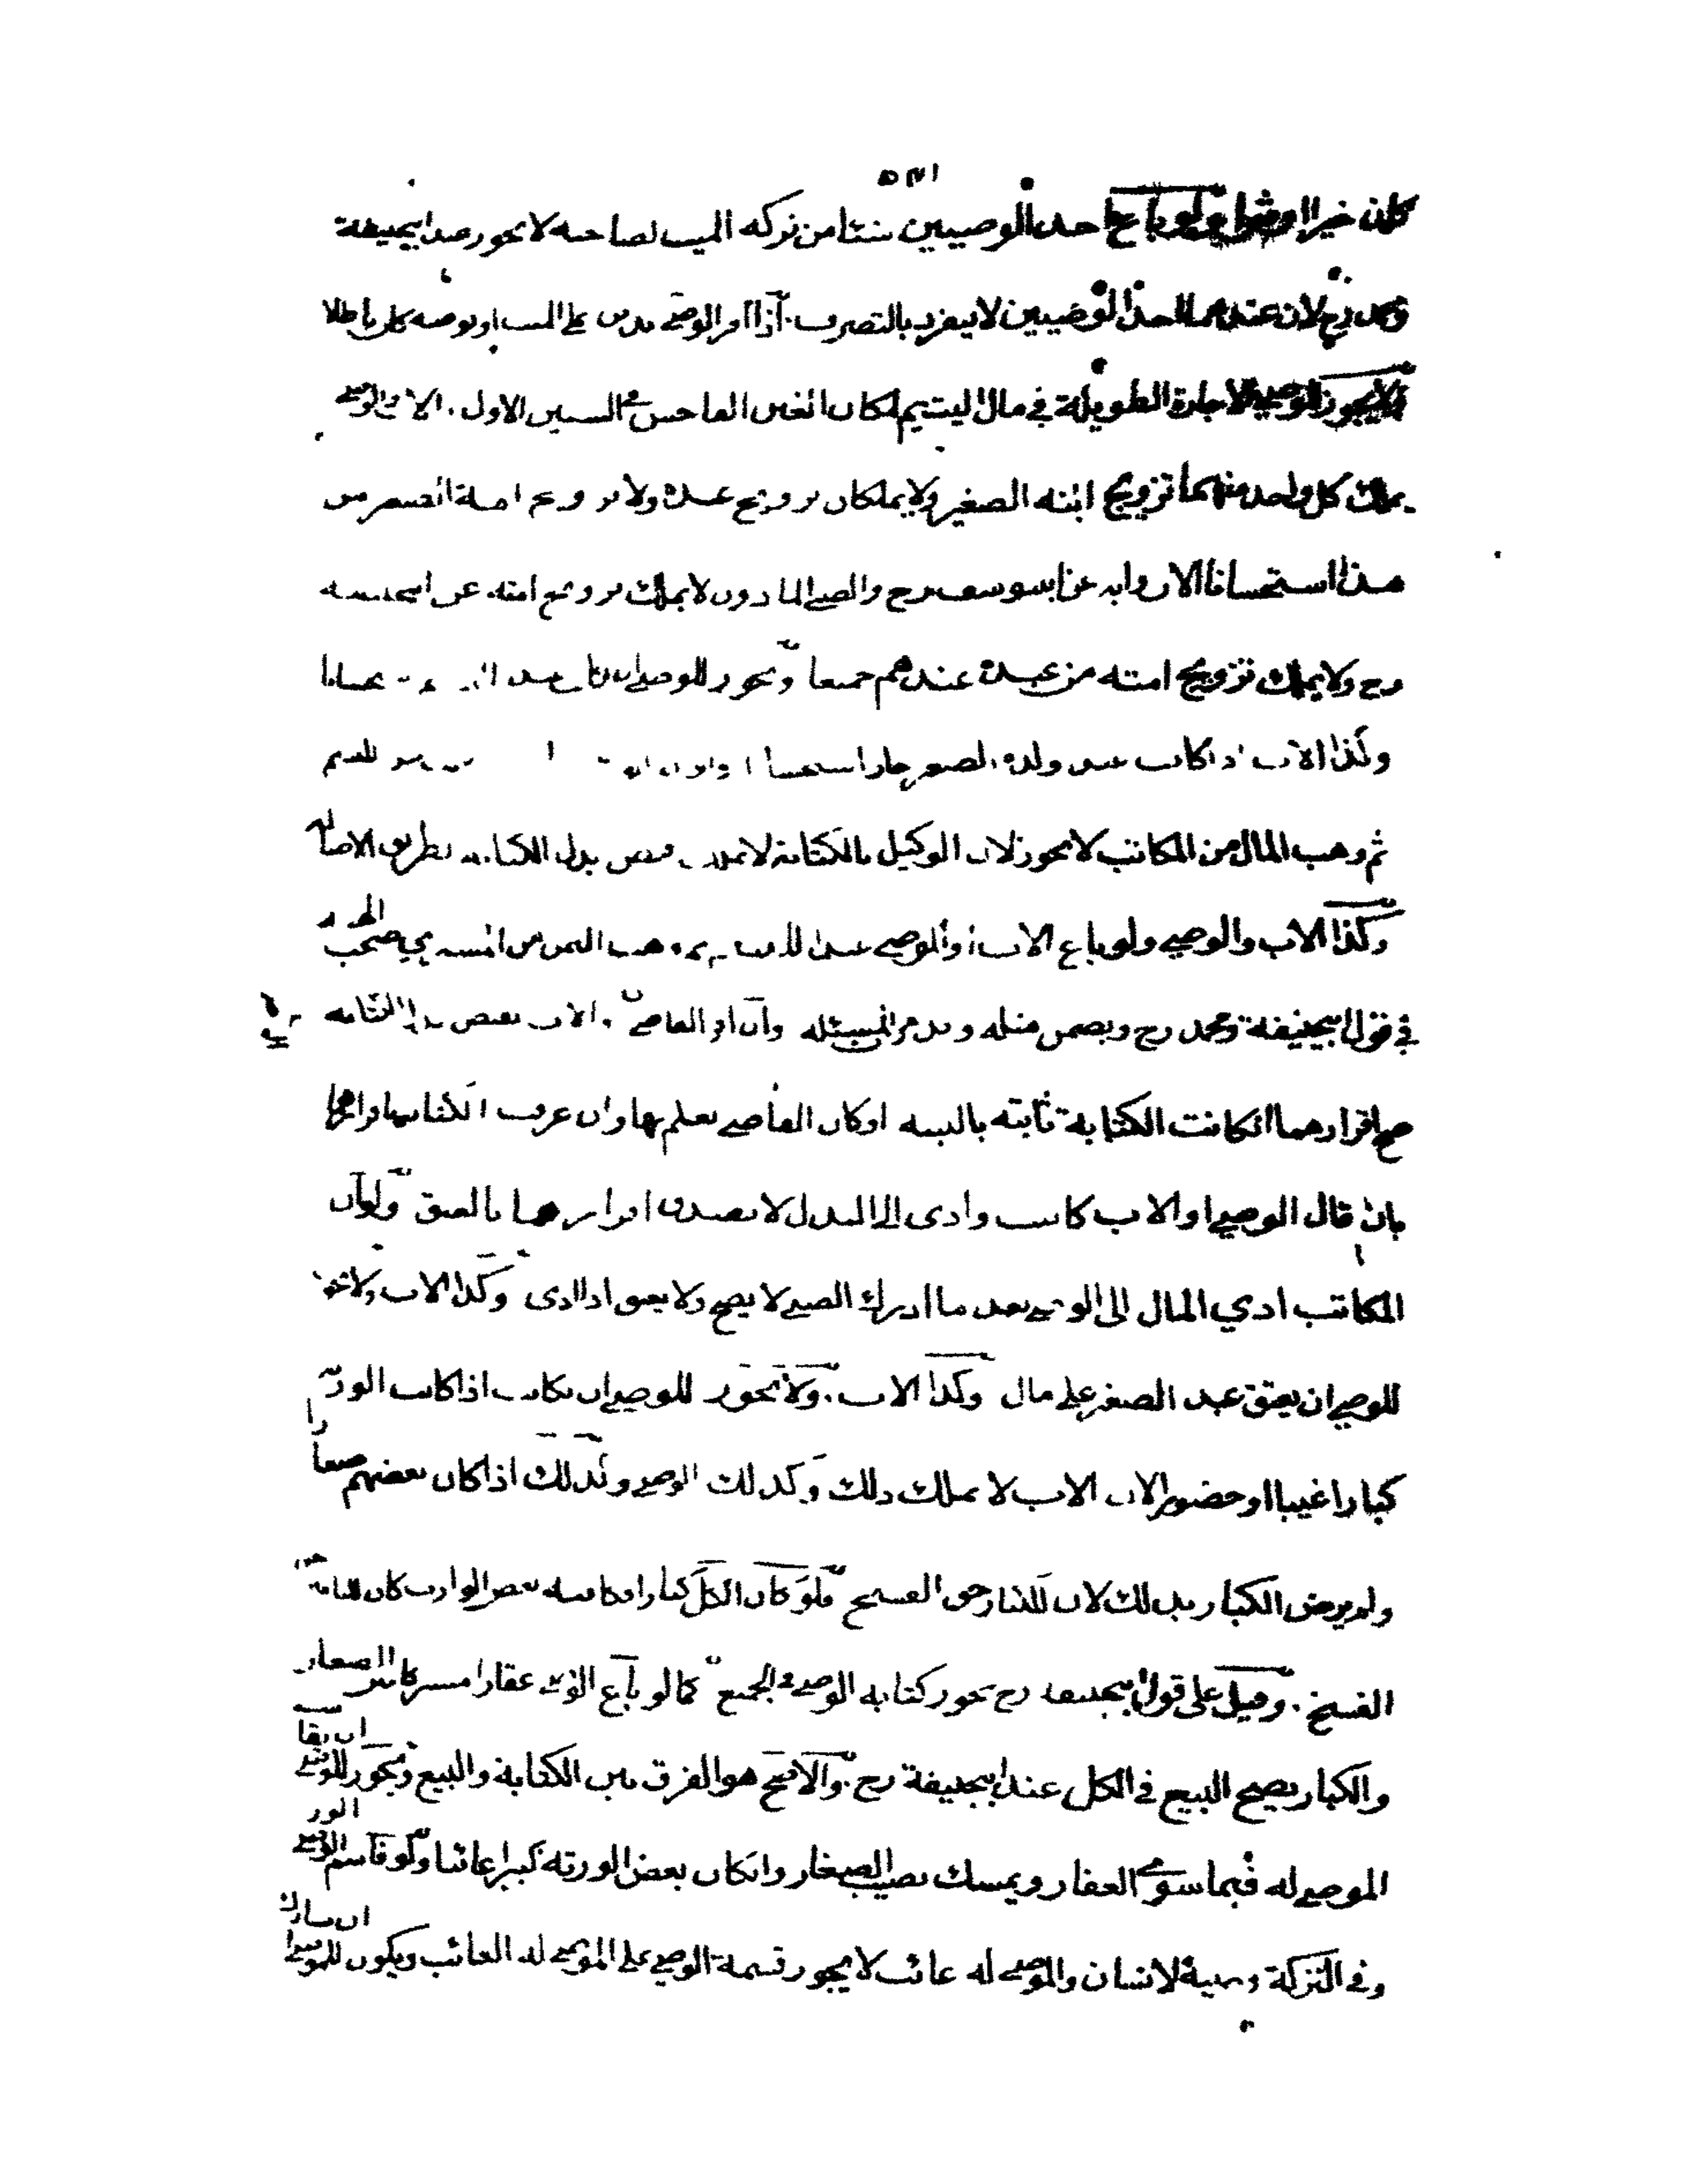 كان خيرا او شرا ولو باع احد الوصيين شيئا من تركه الميت لصاحبه لا يجوز عند ابيحنيفة
ومحمد رح لان عندهما احد الوصيين لا ينفرد بالتصرف اذا اقر الوصي بدين على الميت او بوصيه كان باطلا
لا يجوز للوصي الاجارة الطويلة في مال اليتيم لمكان الغبن الفاحش في السنين الاول الاب والوصي
يملك كل واحد منهما تزويج امة الصغير ولا يملكان تزويج عبده ولا تزويج امة الصغير من
هذا استحسانا الا رواية عن ابي يوسف رح والصبي الماذون لا يملك تزويج امته عن ابيحنيفه
رح ولا يملك تزويج امته من عبده عندهم جميعا ويجوز للوصي ان يكاتب عبد استحسانا
وكذا الاب اذا كاتب عبد ولده الصغير جاز استحسانا لليتيم
ثم وهب المال من المكاتب لا يجوز لان الوكيل بالكتابة لا يملك قبض بدل الكتابه بطريق الاصاله
وكذا الاب والوصي ولو باع الاب او الوصي وهب الثمن من المشتري صح الهبة
في قول ابيحنيفة ومحمد رح ويضمن مثله وقد مر المسئله وان اقر الوصي والاب بقبض بدل الكتابه
صح اقرارهما ان كانت الكتابة ثابته بالبينه او كان القاضي يعلم بها وان عرفت الكتابة باقرارهما
بان قال الوصي او الاب كاتبت وادى الي البدل لا يصدق اقرارهما بالعتق ولو ان
المكاتب ادي المال الى الوصي بعد ما ادرك الصبي لا يصح ولا يعتق اذا ادى وكذا الاب ولا يجوز
للوصي ان يعتق عبد الصغير على مال وكذا الاب ولا يجوز للوصي ان يكاتب اذا كانت الورثة
كبارا غيبا او حضورا لان الاب لا يملك ذلك وكذلك الوصي وكذلك اذا كان بعضهم صغارا
ولم يرض الكبار بذلك لان للكبار حق الفسخ فلو كان الكل كبارا فكاتبه بعض الوارث كان للباقين
الفسخ وقيل على قول ابيحنيفه رح يجوز كتابه الوصي في الجميع كما لو باع الوصي عقارا مشتركا بين الصغار
والكبار يصح البيع في الكل عند ابيحنيفة رح والاصح هو الفرق بين الكتابة والبيع ويجوز للوصي ان يقاسم
الموصى له فيما سوى العقار ويمسك نصيب الصغار وان كان بعض الورثه كبيرا غائبا ولو قاسم الوصي الورثة
وفي التركة وصية لانسان والموصى له غائب لا يجوز قسمة الوصي على الموصى له الغائب ويكون للموصى له ان يشارك